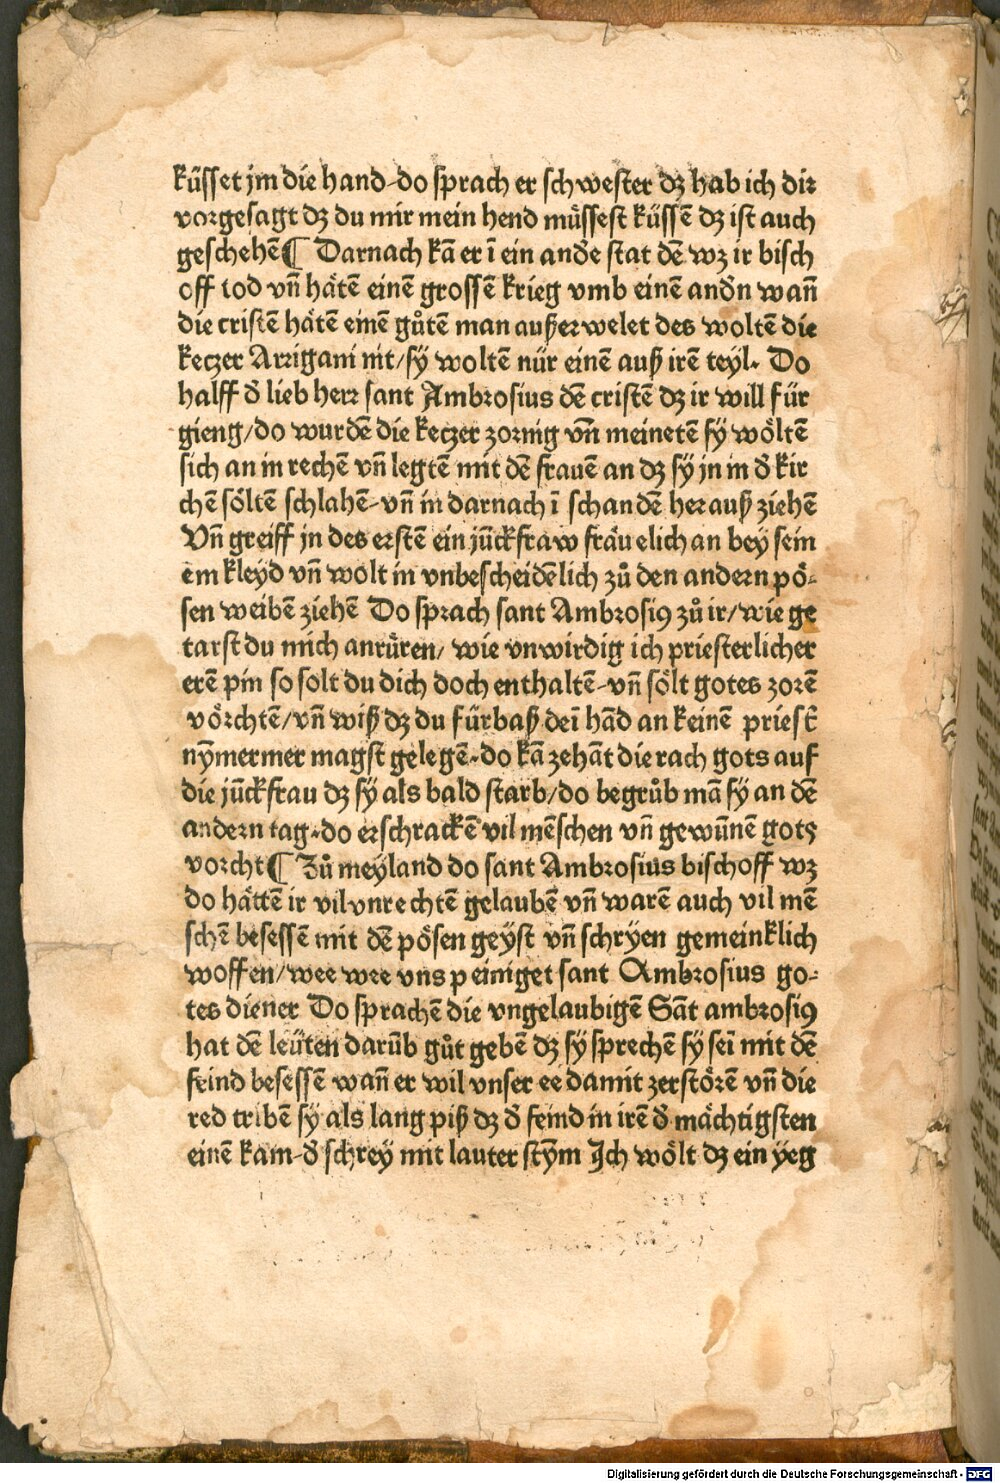 küsset jm die hand-do sprach er schwester dz hab ich dir
vorgesagt dz du mir mein hend müssest küssē dz ist auch
geschehē¶ Darnach kā er ī ein andře stat dē wz ir bisch
off tod vn̄ hätē einē grossē krieg vmb einē andňn wañ
die cristē hätē einē gůtē man außerwelet des woltē die
keczer Arrigani nit/sÿ woltē nür einē auß irē teyl. Do
halff ď lieb herr sant Ambrosius dē cristē dz ir will für
gieng/do wurdē die keczer zornig vn̄ meinetē sÿ wöltē
sich an in rechē vn̄ legtē mit dē frauē an dz sÿ jn in ď kir
chē söltē schlahē-vn̄ in darnach ī schandē herauß ziehē
Vn̄ greiff jn des erstē ein jūckfraw fräuelich an beÿ sein
em kleyd vn̄ wolt in vnbescheidēlich zů den andern pö-
sen weibē ziehē Do sprach sant Ambrosiꝰ zů ir/wie ge
tarst du mich anrüren/ wie vnwirdig ich priesterlicher
erē pin so solt du dich doch enthaltē-vn̄ sölt gotes zorē
vörchtē/vn̄ wiß dz du fürbaß deī hād an keinē priesť
nȳmermer magst gelegē.do kā zehāt die rach gots auf
die jūckfrau dz sÿ als bald starb/do begrůb mā sÿ an dē
andern tag.do erschrackē vil mēschen vn̄ gewūnē gots
vorcht¶ Zů meÿland do sant Ambrosius bischoff wz
do hättē ir vil vnrechtē gelaubē vn̄ warē auch vil mē
schē besessē mit dē pösen geÿst vn̄ schrÿen gemeinklich
woffen/wee wee vns peiniget sant Ambrosius go-
tes diener Do sprachē die vngelaubigē Sāt ambrosiꝰ
hat dē leüten darūb gůt gebē dz sÿ sprechē sÿ seī mit dē
feind besessē wañ er wil vnser ee damit zerstörē vn̄ die
red tribē sÿ als lang piß dz ď feind in irē ď mächtigsten
einē kam-ď schreÿ mit lauter stȳm Ich wölt dz ein ÿeg
Digitalisierung gefördert durch die Deutsche Forschungsgemeinschaft - DFG